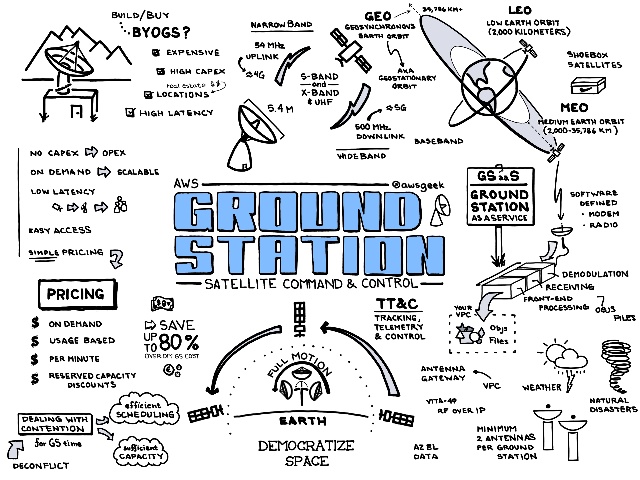 BUILD/BUY
BYOGS?
EXPENSIVE
HIGH CAPEX
real estate $$
LOCATIONS
HIGH LATENCY
NARROW BAND
54 MHz
UPLINK
≈4G
S-BAND
and
X-BAND
& UHF
5.4 M
≈5G
500 MHz
DOWNLINK
WIDEBAND
GEO
GEOSYNCHRONOUS
EARTH ORBIT
35,786 KM+
AKA
GEOSTATIONARY
ORBIT
BASEBAND
LEO
LOW EARTH ORBIT
(2,000 KILOMETERS)
SHOEBOX
SATELLITES
MEO
MEDIUM EARTH ORBIT
(2,000-35,786 KM)
NO CAPEX OPEX
ON DEMAND SCALABLE
LOW LATENCY
EASY ACCESS
SIMPLE PRICING
AWS
@awsgeek
GROUND
STATION
SATELLITE COMMAND & CONTROL
GSaaS
GROUND
STATION
AS A SERVICE
SOFTWARE
DEFINED
- MODEM
- RADIO
DEMODULATION
RECEIVING
FRONT-END
PROCESSING
OBJS
FILES
YOUR
VPC
Objs
Files
PRICING
$ ON DEMAND
$ USAGE BASED
$ PER MINUTE
$ RESERVED CAPACITY
DISCOUNTS
SAVE
UP TO 80%
OVER DIY GS COST
TT&C
TRACKING,
TELEMETRY
& CONTROL
FULL MOTION
EARTH
DEMOCRATIZE
SPACE
ANTENNA
GATEWAY
VPC
VITA-49
RF OVER IP
WEATHER
NATURAL
DISASTERS
MINIMUM
2 ANTENNAS
PER GROUND
STATION
DEALING WITH
CONTENTION
for GS time
DECONFLICT
efficient
SCHEDULING
sufficient
CAPACITY
DATA